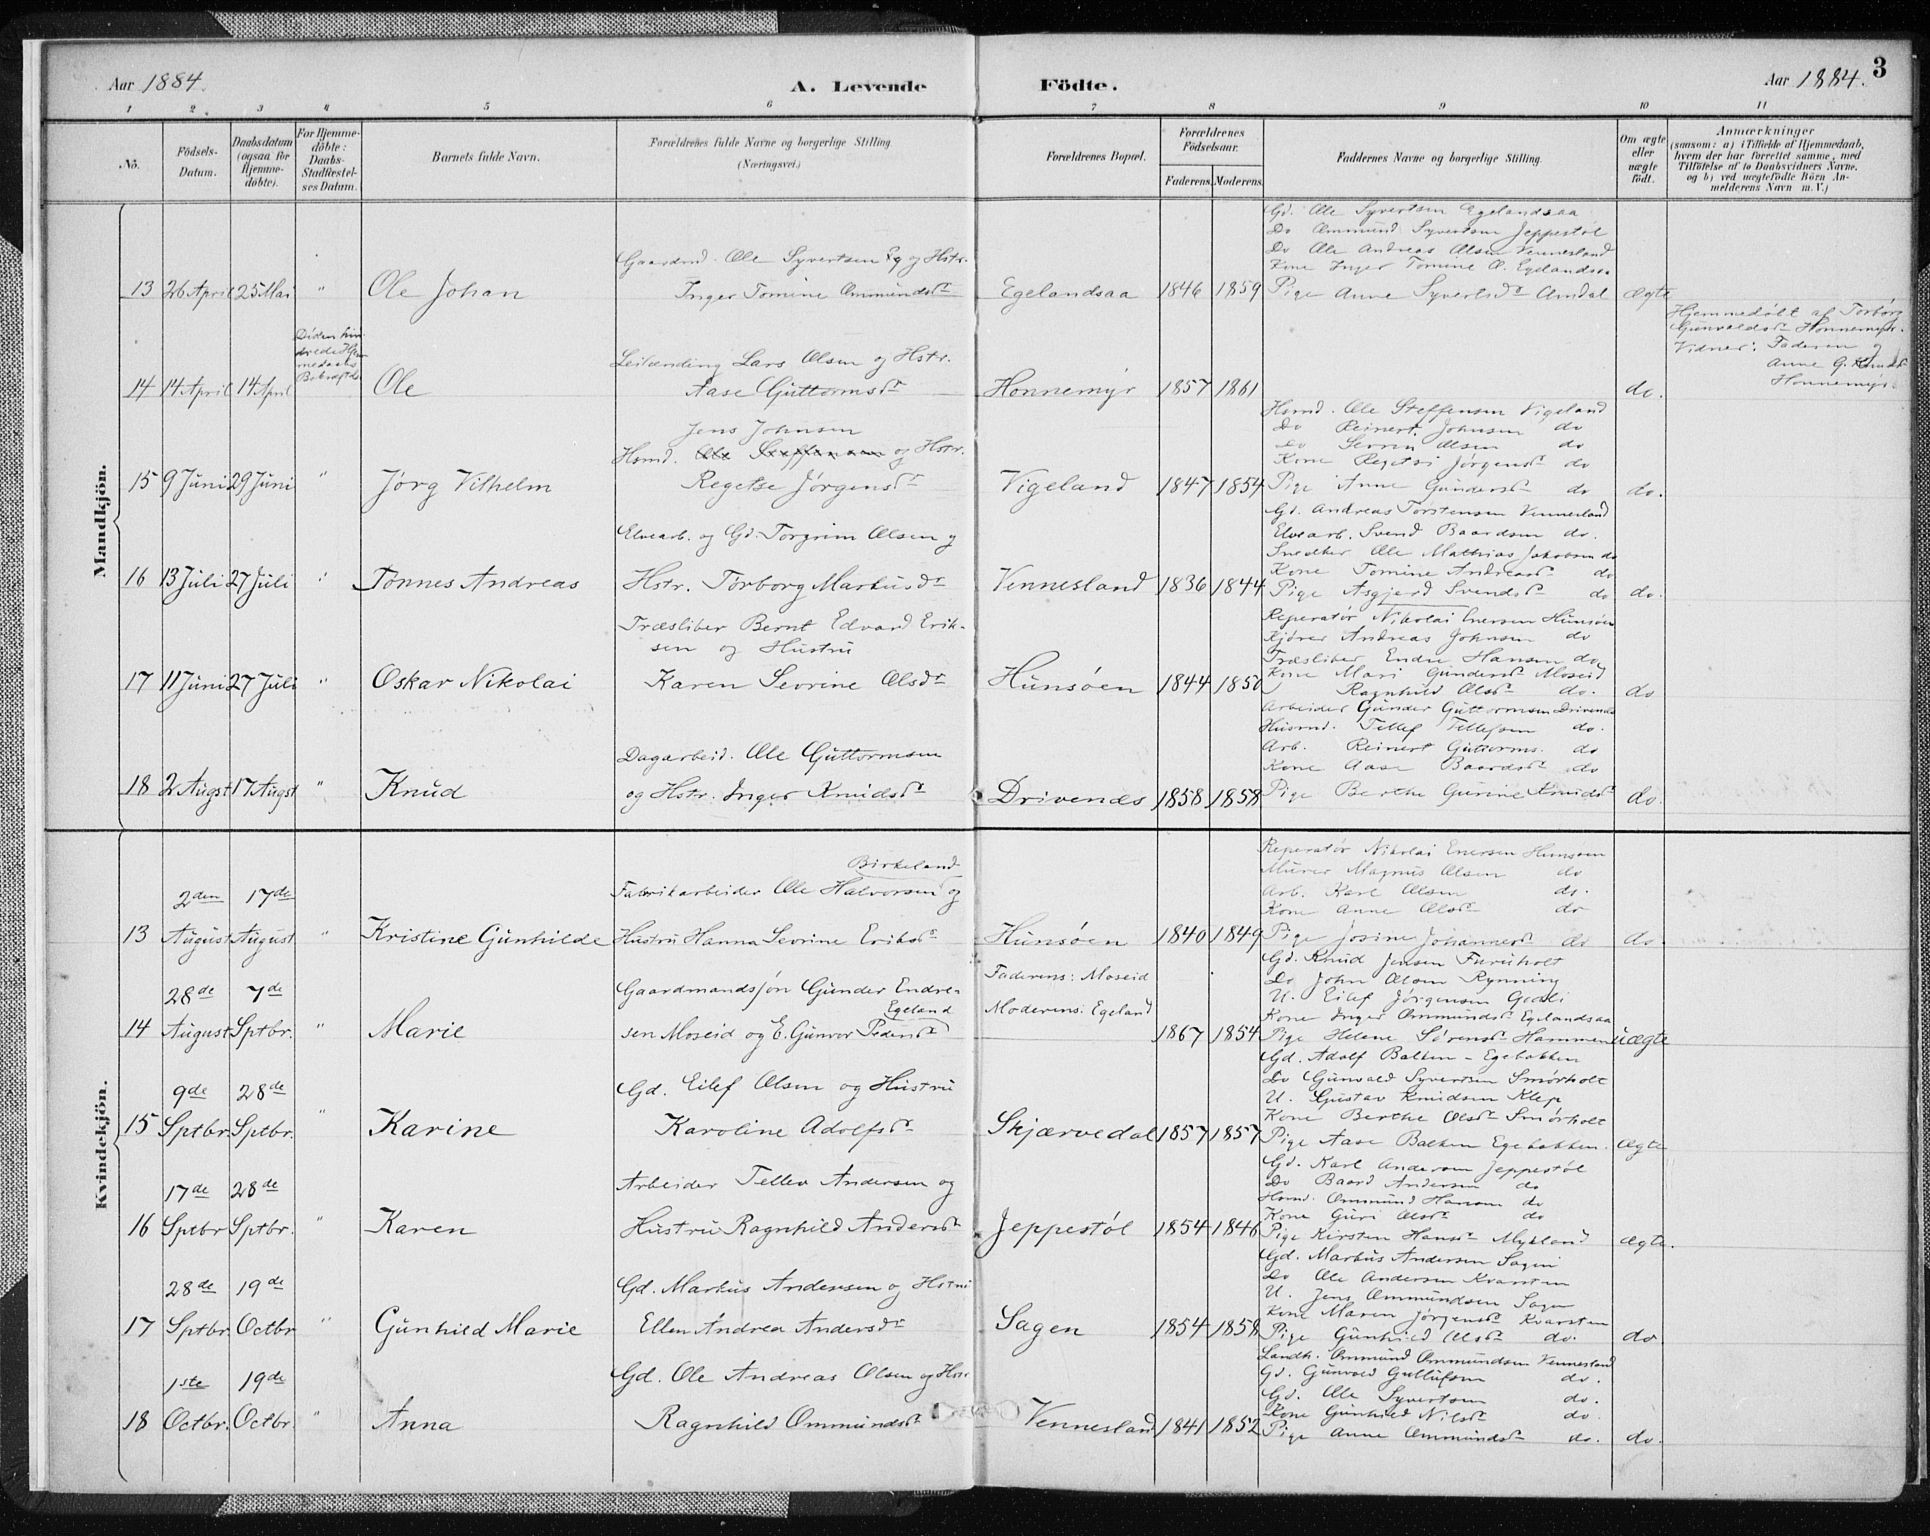 Aar 1884.
A. Levende Födte.
Aar 1884.
3
1 2 3 4 5 6 7 8 9 10 11
No.
Födsels-Datum.
Daabsdatum (ogsaa for Hjemme-döbte).
For Hjemme-döbte: Daabs-Stadfæstel-ses Datum.
Barnets fulde Navn.
Forældrenes fulde Navne og borgerlige Stilling. (Næringsvei.)
Forældrenes Bopæl.
Forældrenes Födselsaar.
Faderens. Moderens.
Faddernes Navne og borgerlige Stilling.
Om ægte eller uægte födt.
Anmærkninger
(saasom: a) i Tilfælde af Hjemmedaab, hvem der har forrettet samme, med Tilföielse af to Daabsvidners Navne, og b) ved uægtefödte Börn An-melderens Navn m. V.)
Mandkjön.
Gd. Ole Syvertsen Egelandsaa
Do Ommund Syvertsen Jeppestøl
Do Ole Andreas Olsen Vennesland
Kone Inger Tomine O. Egelandsaa
Gaardmd. Ole Syvertsen Eg og Hstr.
13 26 April 25 Mai " Ole Johan Inger Tomine Ommundsdr Egelandsaa 1846 1859 Pige Anne Syvertsdr Omdal ægte
Hjemmedøbt af Torborg
Gunvaldsdr Honnemyr.
Vidner: Faderen og
Anne G. Knudsdr
Honnemyr
Døden hin-
drede Hjem-
medaabs
Bekræftelse
Leilænding Lars Olsen og Hstr.
14 14 April 14 April Ole Aase Guttormsdr Honnemyr 1857 1861 do.
Husmd. Ole Steffensen Vigeland
Do Reinert Johnsen do
Do Sevrin Olsen do
Kone Regetse Jørgensdr do
Jens Johnsen
Husmd. Ole Steffensen og Hstr.
15 9 Juni 29 Juni " Jørg Vilhelm Regetse Jørgensdr Vigeland 1847 1854 Pige Anne Gundersdr do do.
Gd. Andreas Torstensen Vennesland
Elvearb. Svend Baardsen do.
Snedker Ole Mathias Jakobsen do
Kone Tomine Andreasdr do
Elvearb. og Gd. Torgrim Olsen og
16 13 Juli 27 Juli " Tønnes Andreas Hstr. Torborg Markusdr Vennesland 1836 1844 Pige Asgjerd Svendsdr do do.
Reperatør Nikolai Enersen Hunsøen
Kjører Andreas Johnsen do
Træsliber Endre Hansen do
Kone Mari Gundersdr Moseid
Træsliber Bernt Edvard Erik-
sen og Hustru
17 11 Juni 27 Juli " Oskar Nikolai Karen Sevrine Olsdr Hunsøen 1844 1850 Ragnhild Olsdr do. do
Arbeider Gunder Guttormsen Drivenes
Husmd. Tellef Tellefsen do.
Arb. Reinert Guttorms. do
Kone Aase Baardsdr do
Dagarbeid. Ole Guttormsen
18 2 Augst 17 Augst " Knud og Hstr. Inger Knudsdr Drivenes 1858 1858 Pige Berthe Gurine Knudsdr do.
Kvindekjön.
Reperatør Nikolai Enersen Hunsøen
Murer Magnus Olsen do
Arb. Karl Olsen do.
Kone Anne Olsdr do
Birkeland
Fabrikarbeider Ole Halvorsen og
13 2den August 17de August " Kristine Gunhilde Hustru Hanna Sevrine Eriksdr Hunsøen 1840 1849 Pige Josine Johannesdr do do.
Gd. Knud Jensen Furuholt
Do John Olsen Rynning
U. Eilef Jørgensen Godli
Kone Inger Ommundsdr Egelandsaa
Gaardmandsøn Gunder Endre-
Egeland
Faderens: Moseid
Moderens: Egeland
14 28de August 7de Sptbr. " Marie sen Moseid og E. Gunvor Pedersdr 1867 1854 Pige Helene Sørensdr Hammen uægte
Gd. Adolf Balken - Egebakken
Do Gunvald Syvertsen Smørholt
U. Gustav Knudsen Klep
Kone Berthe Olsdr Smørholt
Gd. Eilef Olsen og Hustru
15 9de Sptbr. 28de Sptbr. " Karine Karoline Adolfsdr Skjærvedal 1857 1857 Pige Aase Balken Egebakken. ægte
Gd. Karl Andersen Jeppestøl
Do Baard Andersen do
Husmd. Ommund Hansen do
Kone Guri Olsdr do
Arbeider Tellev Andersen og
16 17de Sptbr 28de Sptbr. " Karen Hustru Ragnhild Andersdr Jeppestøl 1854 1846 Pige Kirsten Hansdr Mykland ægte.
Gd. Markus Andersen Sagen
Do Ole Andersen Kvarsten
U. Jens Ommundsen Sagen
Kone Maren Jørgensdr Kvarsten
Gd. Markus Andersen og Hstru
17 28de Sptbr. 19de Octbr " Gunhild Marie Ellen Andrea Andersdr Sagen 1854 1858 Pige Gunhild Olsdr do. do.
Landh. Ommund Ommundsen Vennesland
Gd. Gunvald Gullufsen do.
Gd. Ole Syvertsen do.
Kone Gunhild Nilsdr do
Gd. Ole Andreas Olsen og Hstr
18 1ste Octbr. 19de Octbr. " Anna Ragnhild Ommundsdr Vennesland 1841 1852 Pige Anne Ommundsdr do. do.